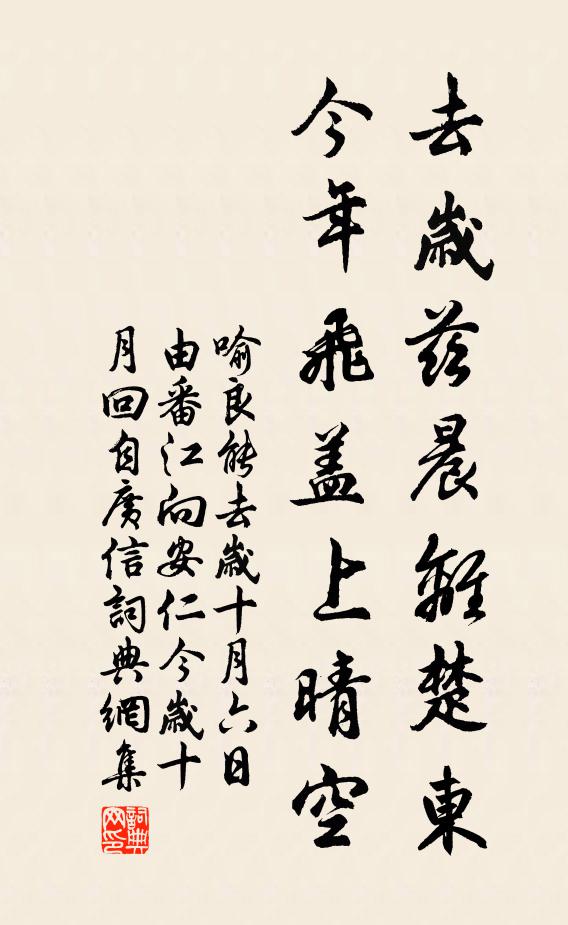 去歲茲晨離楚東
今年飛蓋上晴空
喻良能去歲十月六日
由番江向安仁今歲十
月回自廣信詞典網集
詞典
网印